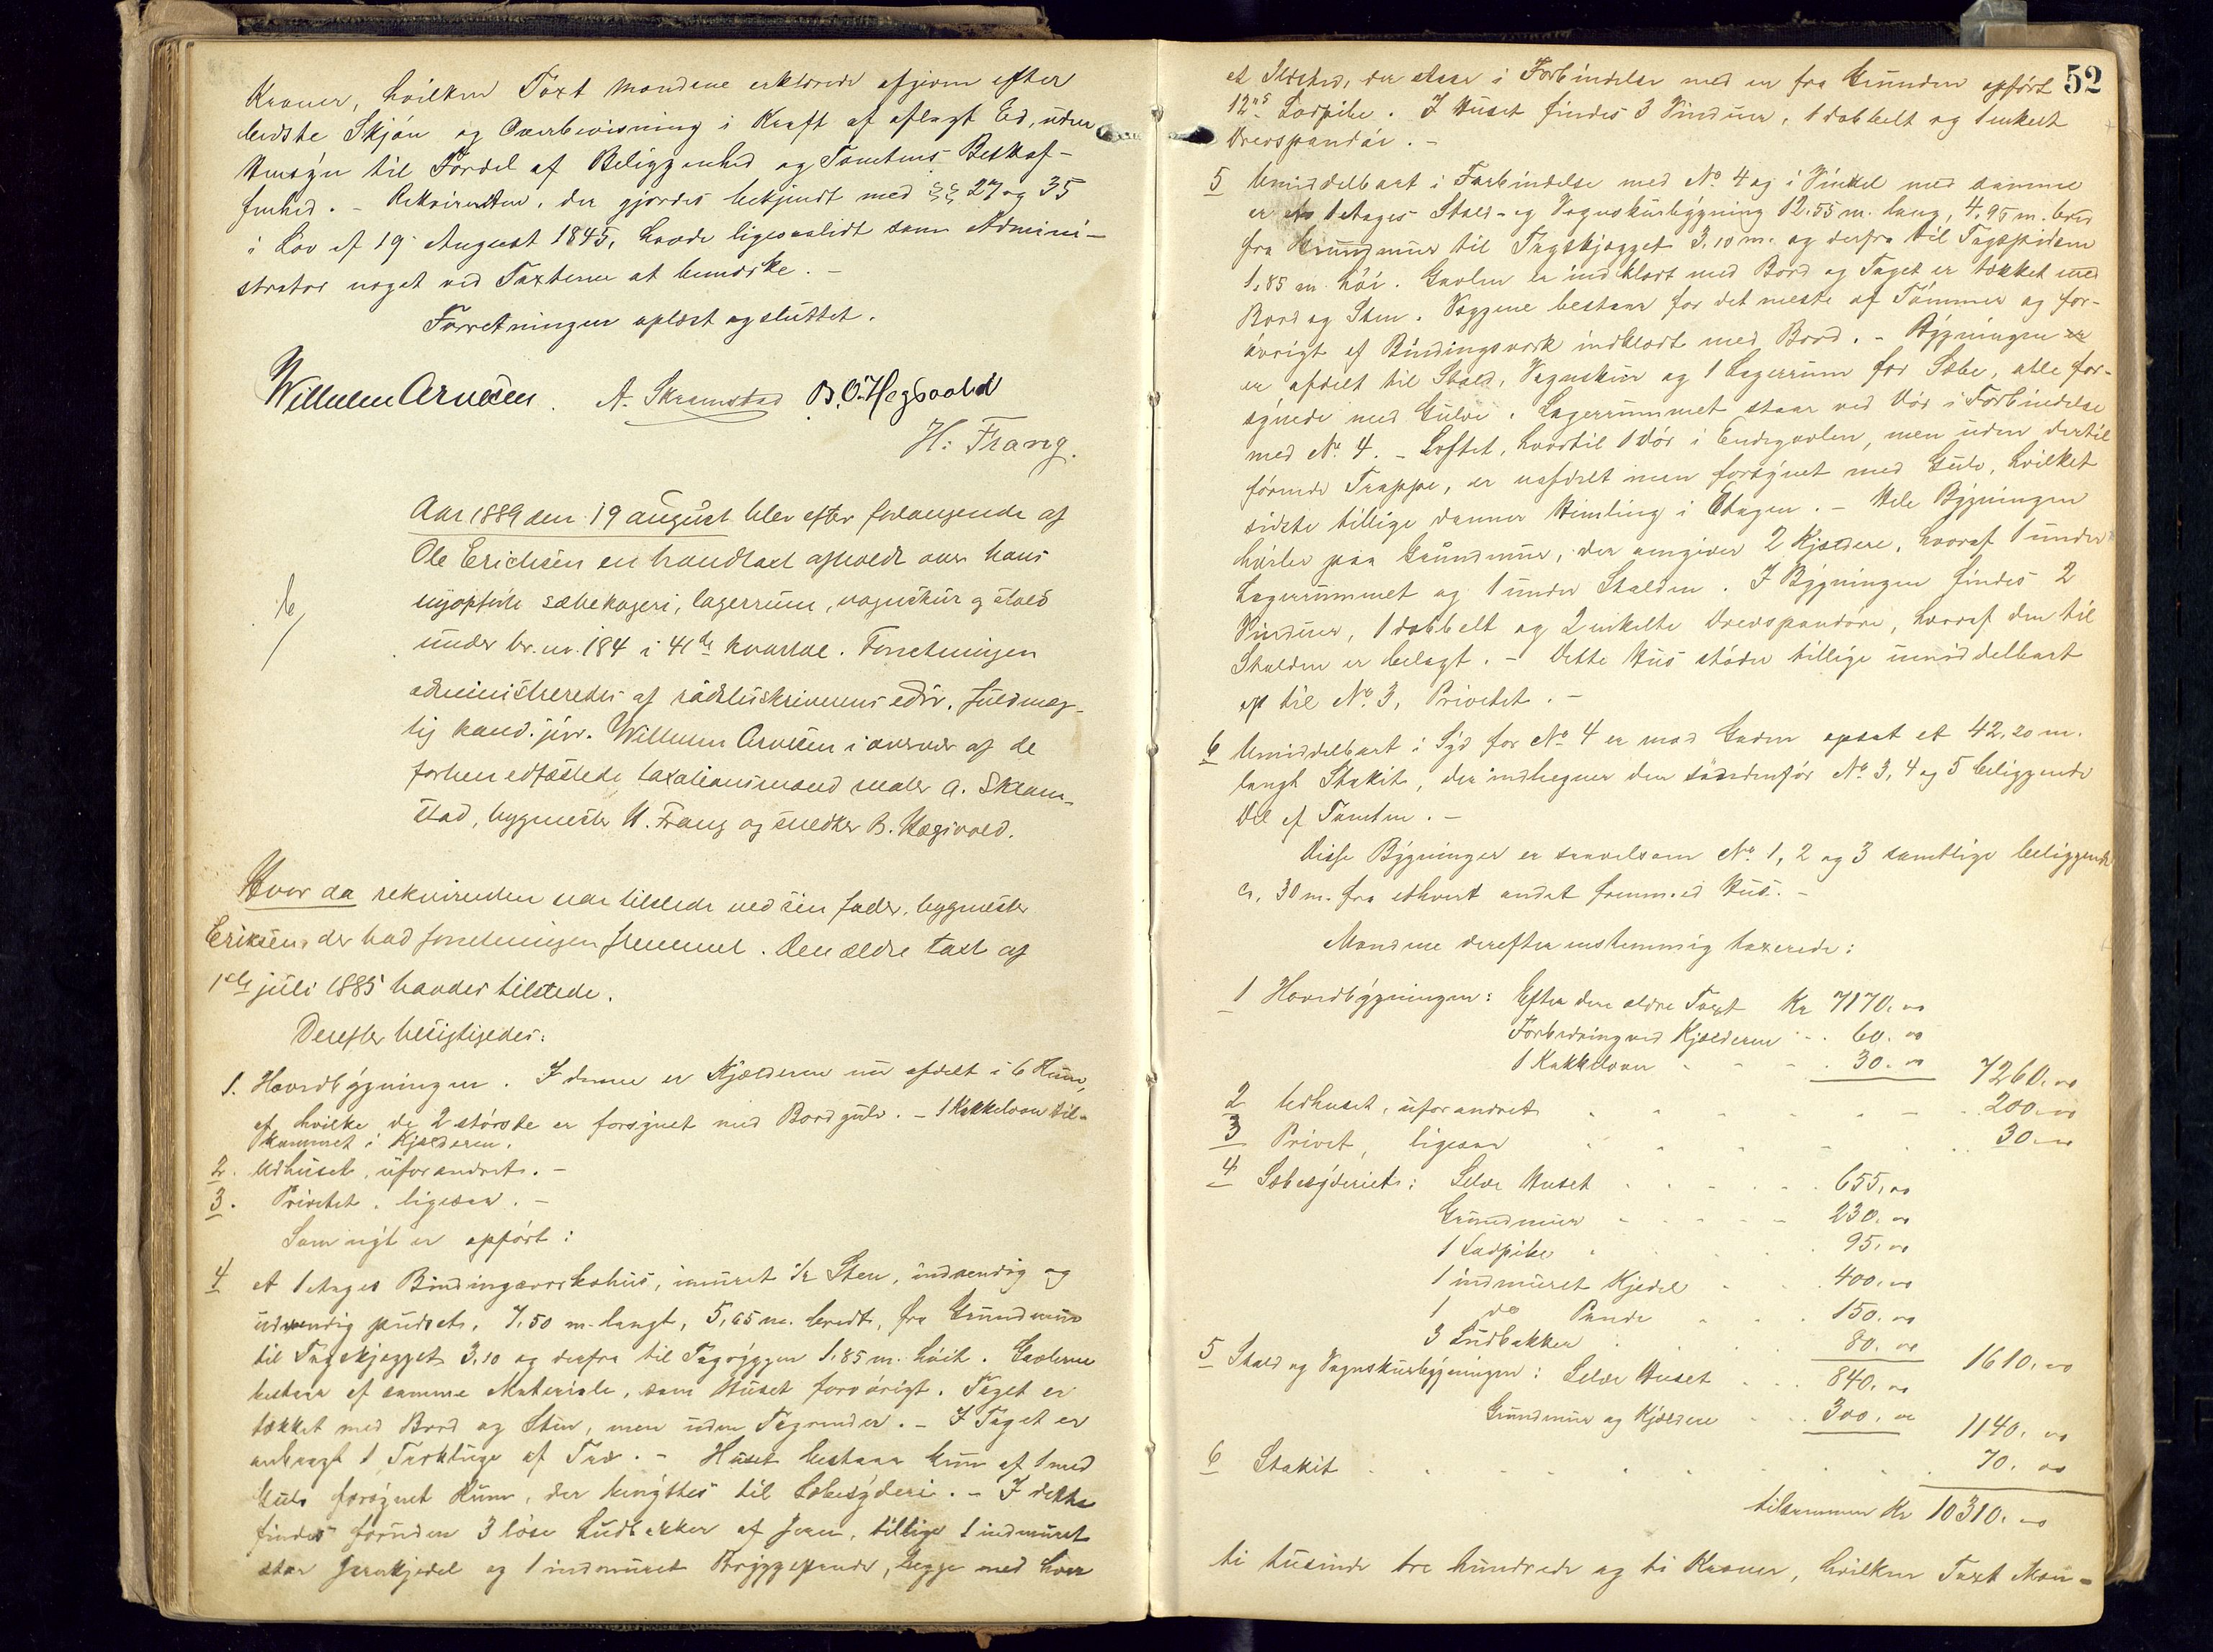 Kroner, hvilken Taxt Mændene erklærede afgiven efter
bedste Skjøn og Overbevisning i Kraft af aflagt Ed, uden
Hensyn til Fordel af Beliggenhed og Tomtens Beskaf-
fenhed. - Rekvirenten, der gjordes bekjendt med §§ 27 og 35
i Lov af 19 August 1845, havde ligesaalidt som Admini-
strator noget ved Taxterne at bemærke. -
Forretningen oplæst og sluttet.
Wilhelm Arnesen. A. Skramstad B. O. Hegsvold
H. Frang.
Aar 1889 den 19 august blev efter forlangende af
Ole Erichsen en brandtaxt afholdt over hans
nyopførte sæbekogeri, lagerrum, vognskur og stald
under br. nr. 184 i 4de kvartal. Forretningen
administreredes af rådstuskriverens edsv. fuldmæg-
tig kand. jur. Wilhelm Arnesen i overvær af de
forhen edfæstede taxationsmænd maler A. Skram-
stad, bygmester H. Frang og snedker B. Hegsvold.
Hvor da rekvirenten var tilstede ved sin fader, bygmester
Eriksen, der bad forretningen fremmet. Den ældre taxt af
1ste juli 1885 havdes tilstede.
Derefter besigtigedes:
1. Hovedbygningen. I denne er Kjælderen nu afdelt i 6 Rum,
af hvilke de 2 største er forsynet med Bordgulv. - 1 Kakkelovn til-
kommet i Kjælderen.
2. Udhuset, uforandret. -
3. Privetet, ligesaa. -
Som nyt er opført:
4 et 1 Etages Bindingsverkshus, imuret 1/2 Sten, indvendig og
udvendig pudset, 7,50 m. langt, 5,65 m. bredt, fra Grundmur
til Tagskjægget 3,10 og derfra til Tagryggen 1,85 m. høit. Gavlerne
bestaar af samme Materiale, som Huset forøvrigt. Taget er
tækket med Bord og Sten, men uden Tagrender. - I Taget er
anbragt 1 Trækluge af Træ. - Huset bestaar kun af 1 med
Gulv forsynet Rum, der benyttes til Sæbesyderi. - I dette
findes foruden 3 løse Ludbakker af Jern, tillige 1 indmuret
stor Jernkjedel og 1 indmuret Bryggepande, begge med hver
52
et Ildsted, der staar i Forbindelse med en fra Grunden opført
12"s Ladpibe. I Huset findes 3 Vinduer, 1 dobbelt og 1 enkelt
Drevspandør. -
5 Umiddelbart i Forbindelse med No. 4 og i Vinkel med samme
er 1 Etages Stald- og Vognskurbygning 12,55 m. lang, 4,95 m. bred
fra Grundmur til Tagskjægget 3,10 m. og derfra til Tagspidsen
1,85 m. høi. Gavlen er indklædt med Bord og Taget er tækket med
Bord og Sten. Væggene bestaar for det meste af Tømmer og for-
øvrigt af Bindingsværk indklædt med Bord. - Bygningen er
er afdelt til Stald, Vognskur og 1 Lagerrum for Sæbe, alle for-
synede med Gulve. Lagerrummet staar ved Dør i Forbindelse
med No. 4. - Loftet, hvortil 1 Dør i Endegavlen, men uden dertil
førende Trappe, er uafdelt men forsynet med Gulv, hvilket
sidste tillige danner Himling i Etagen. - Hele Bygningen
hviler paa Grundmur, der omgiver 2 Kjældere, hvoraf 1 under
Lagerrummet og 1 under Stalden. I Bygningen findes 2
Vinduer, 1 dobbelt og 2 enkelte Drevspandøre, hvoraf den til
Stalden er belagt. - Dette Hus støder tillige umiddelbart
op til No. 3, Privetet. -
6 Umiddelbart i Syd for No. 4 er mod Gaden opsat et 42,20 m.
langt Stakit, der indhegner den søndenfor No. 3, 4 og 5 beliggende
Del af Tomten. -
Disse Bygninger er saavelsom No. 1, 2 og 3 samtlige beliggende
ca. 30 m. fra ethvert andet fremmed Hus. -
Mændene derefter enstemmig taxerede:
1 Hovedbygningen: Efter den ældre Taxt Kr 7170,00
Forbedring ved Kjælderen 60,00
1 Kakkelovn 30,00 7260,00
2 Udhuset, uforandret 200,00
3 Privet, ligesaa 30,00
4 Sæbesyderiet: Selve Huset 655,00
Grundmur 230,00
1 Ladpibe 95,00
1 indmuret Kjedel 400,00
1 do Pande 150,00
3 Ludbakker 80,00 1610,00
5 Stald og Vognskurbygningen: Selve Huset 840,00
Grundmur og Kjældere 300,00 1140,00
6 Stakit 70,00
tilsammen Kr 10310,00
ti tusinde tre hundrede og ti Kroner, hvilken Taxt Mæn-